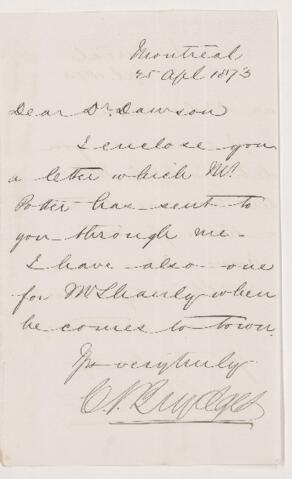 Montréal
25 Apl 1873
Dear Dr. Dawson
I enclose you
a letter which Mr.
Potter has sent to
you through me -
I have also one
for Mr Shanly when
he comes to town.
Yrs very truly
C. J. Brydges